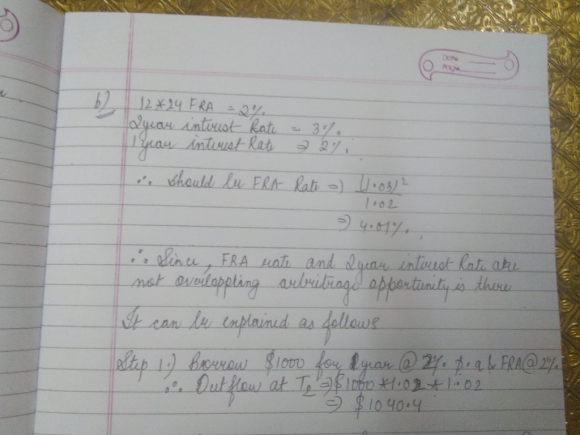 DATE
PAGE
b) 12*24 FRA = 2%.
2year interest Rate = 3%.
1 year interest Rate => 2%.
∴ Should be FRA Rate => (1.03)²
1.02
=> 4.01%.
∴ Since, FRA rate and 2year interest Rate are
not overlappling arbitrage opportunity is there
It can be explained as follows
Step 1.) Borrow $1000 for 1year @ 2%. p.a & FRA@2%.
∴ Outflow at T2 => $1000*1.02*1.02
=> $1040.4